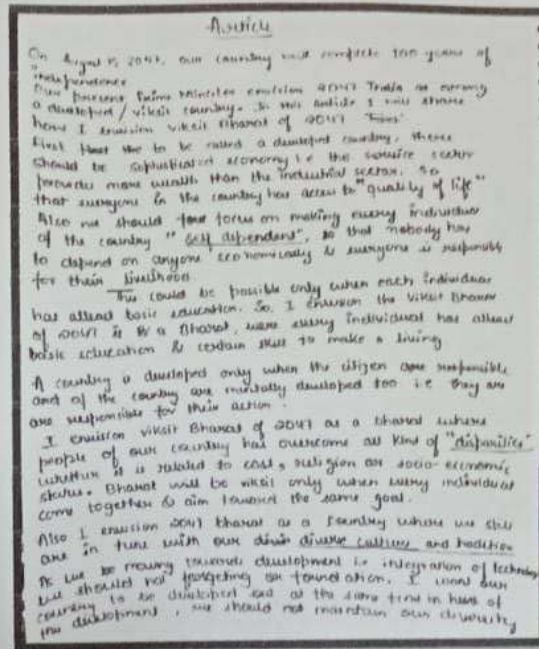 Article
On August 15, 2047, our country will complete 100 years of
independence
Our present Prime Minister envision 2047 India as owning
a developed / viksit country. In this article I will share
how I envision viksit Bharat of 2047
First that the to be called a developed country, there
should be sophisticated economy i.e the service sector
provides more wealth than the industrial sector. So
that everyone in the country has access to "quality of life"
Also we should focus on making every individual
of the country "self dependent", so that nobody has
to depend on anyone economically & everyone is responsible
for their livelihood
This could be possible only when each individual
has atleast basic education. So, I envision the viksit Bharat
of 2047 is a Bharat, were every individual has atleast
basic education & certain skill to make a living
A country is developed only when the citizen are responsible
and of the country are mentally developed too i.e they are
are responsible for their action.
I envision viksit Bharat of 2047 as a bharat where
people of our country has overcome all kind of "disparities"
whether it is related to cast, religion or socio-economic
status. Bharat will be viksit only when every individual
come together & aim toward the same goal.
Also I envision 2047 bharat as a country where we still
are in tune with our diverse culture and tradition
As we be moving towards development i.e integration of technology
we should not forgetting our foundation. I want our
country to be developed but at the same time in haste of
the development, we should not maintain our diversity